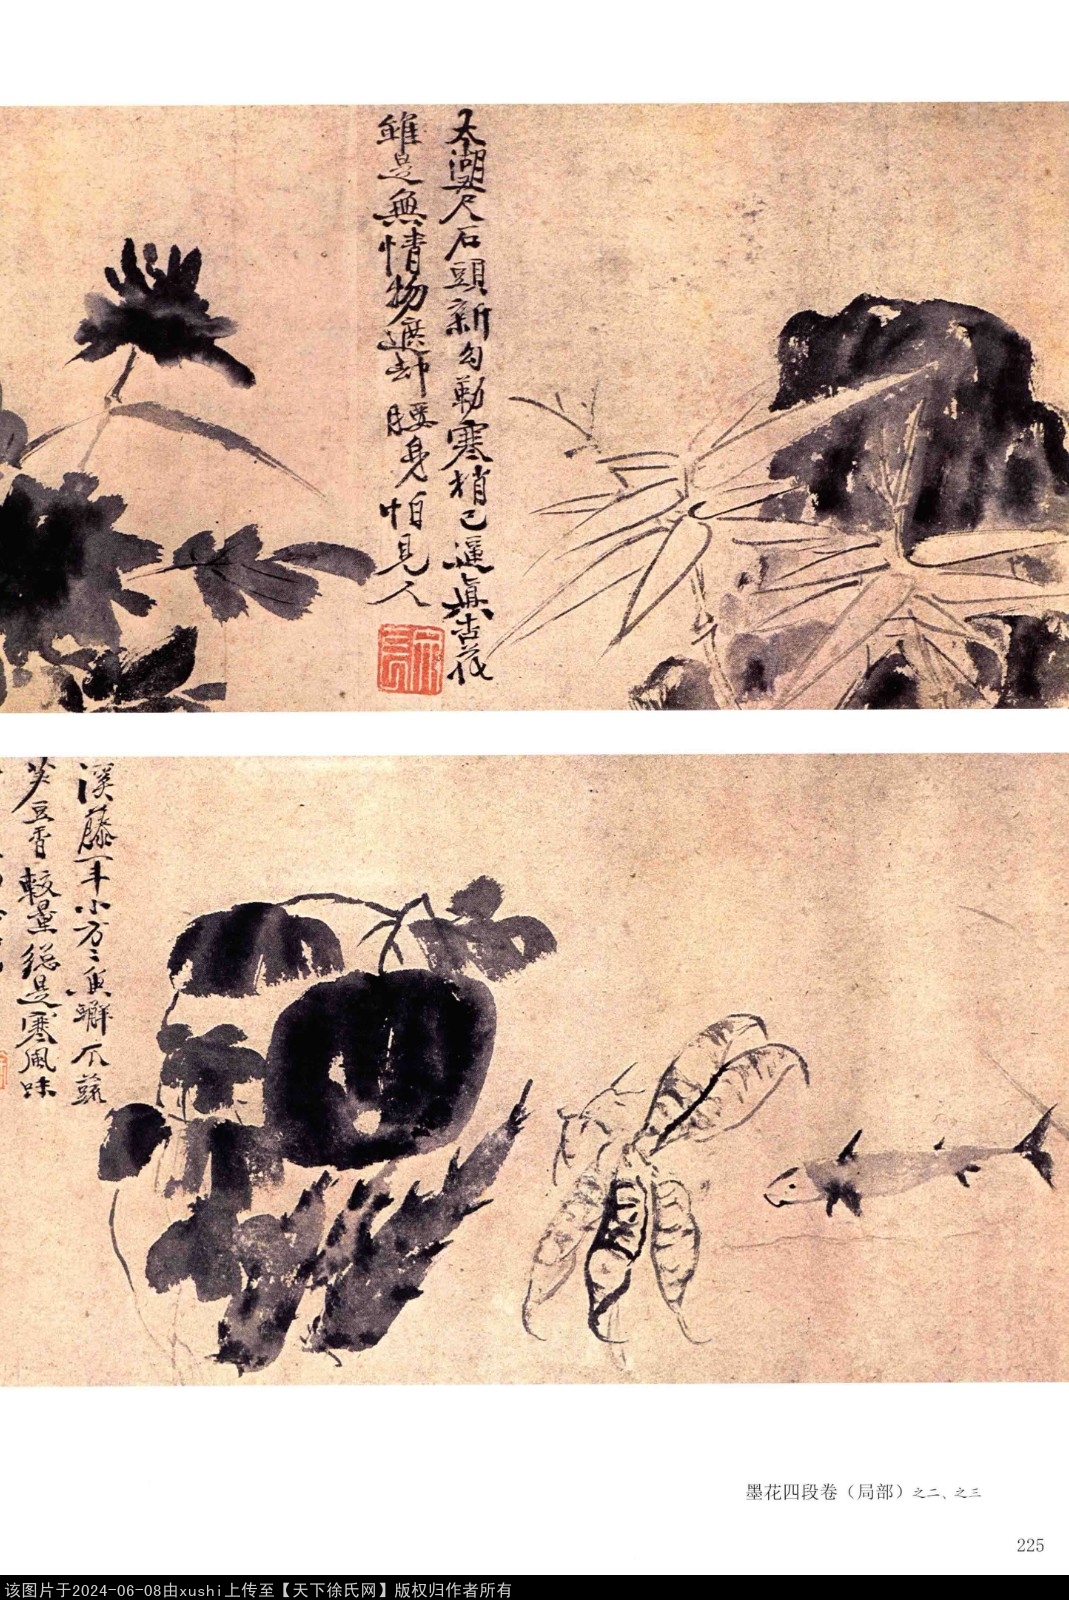 太湖異尺石頭新勾勒寒梢已逼真古花
雖是無情物遮却腰身怕見人
溪藤一半小方方魚蟹瓜蔬
笋豆香較量總是寒風味
墨花四段卷（局部）之二、之三
225
该图片于2024-06-08由xushi上传至【天下徐氏网】版权归作者所有